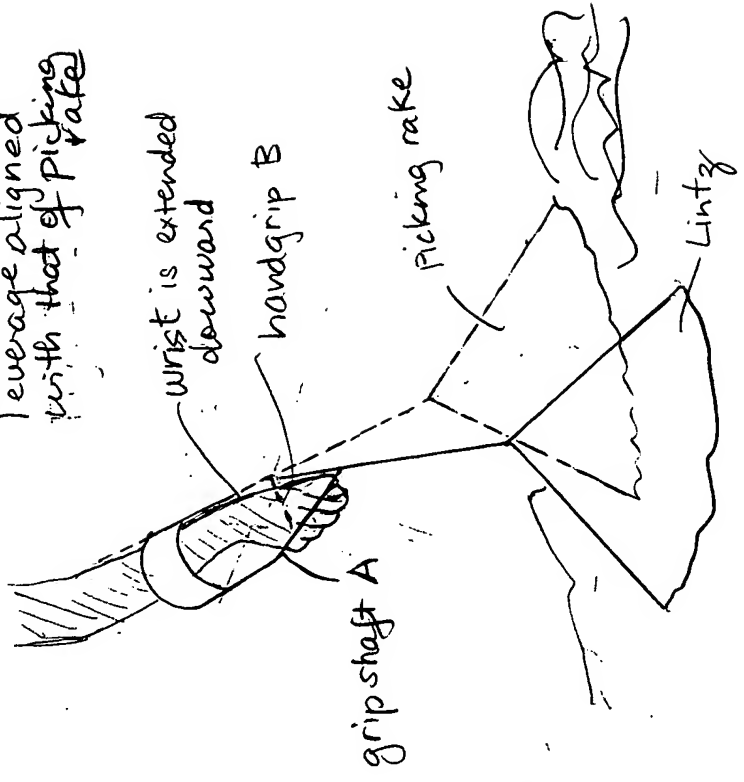 leverage aligned
with that of picking
rake
wrist is extended
downward
handgrip B
picking rake
grip shaft A
Lintz